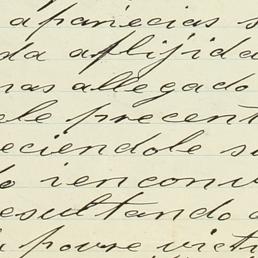 aparecias s
da aflijida
ras allegado
ele precent
eciendole su
o ienconv
esultando a
povre victi